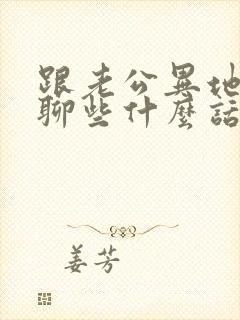 跟老公異地
聊些什麼話
姜芳